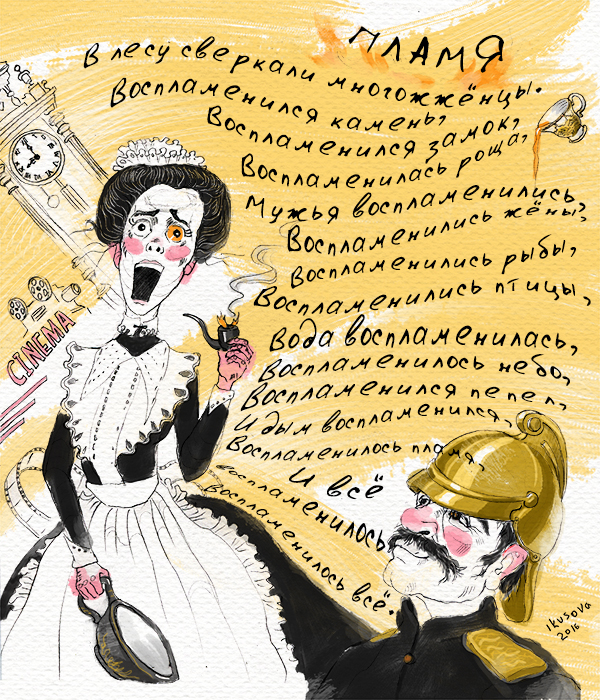 ПЛАМЯ
В лесу сверкали многожжёнцы.
Воспламенился камень,
Воспламенился замок,
Воспламенилась роща,
Мужья воспламенились,
Воспламенились жёны,
Воспламенились рыбы,
Воспламенились птицы,
Вода воспламенилась,
Воспламенилось небо,
Воспламенился пепел,
И дым воспламенился,
Воспламенилось пламя,
И всё
воспламенилось
Воспламенилось всё.
CINEMA
Ikusova
2016